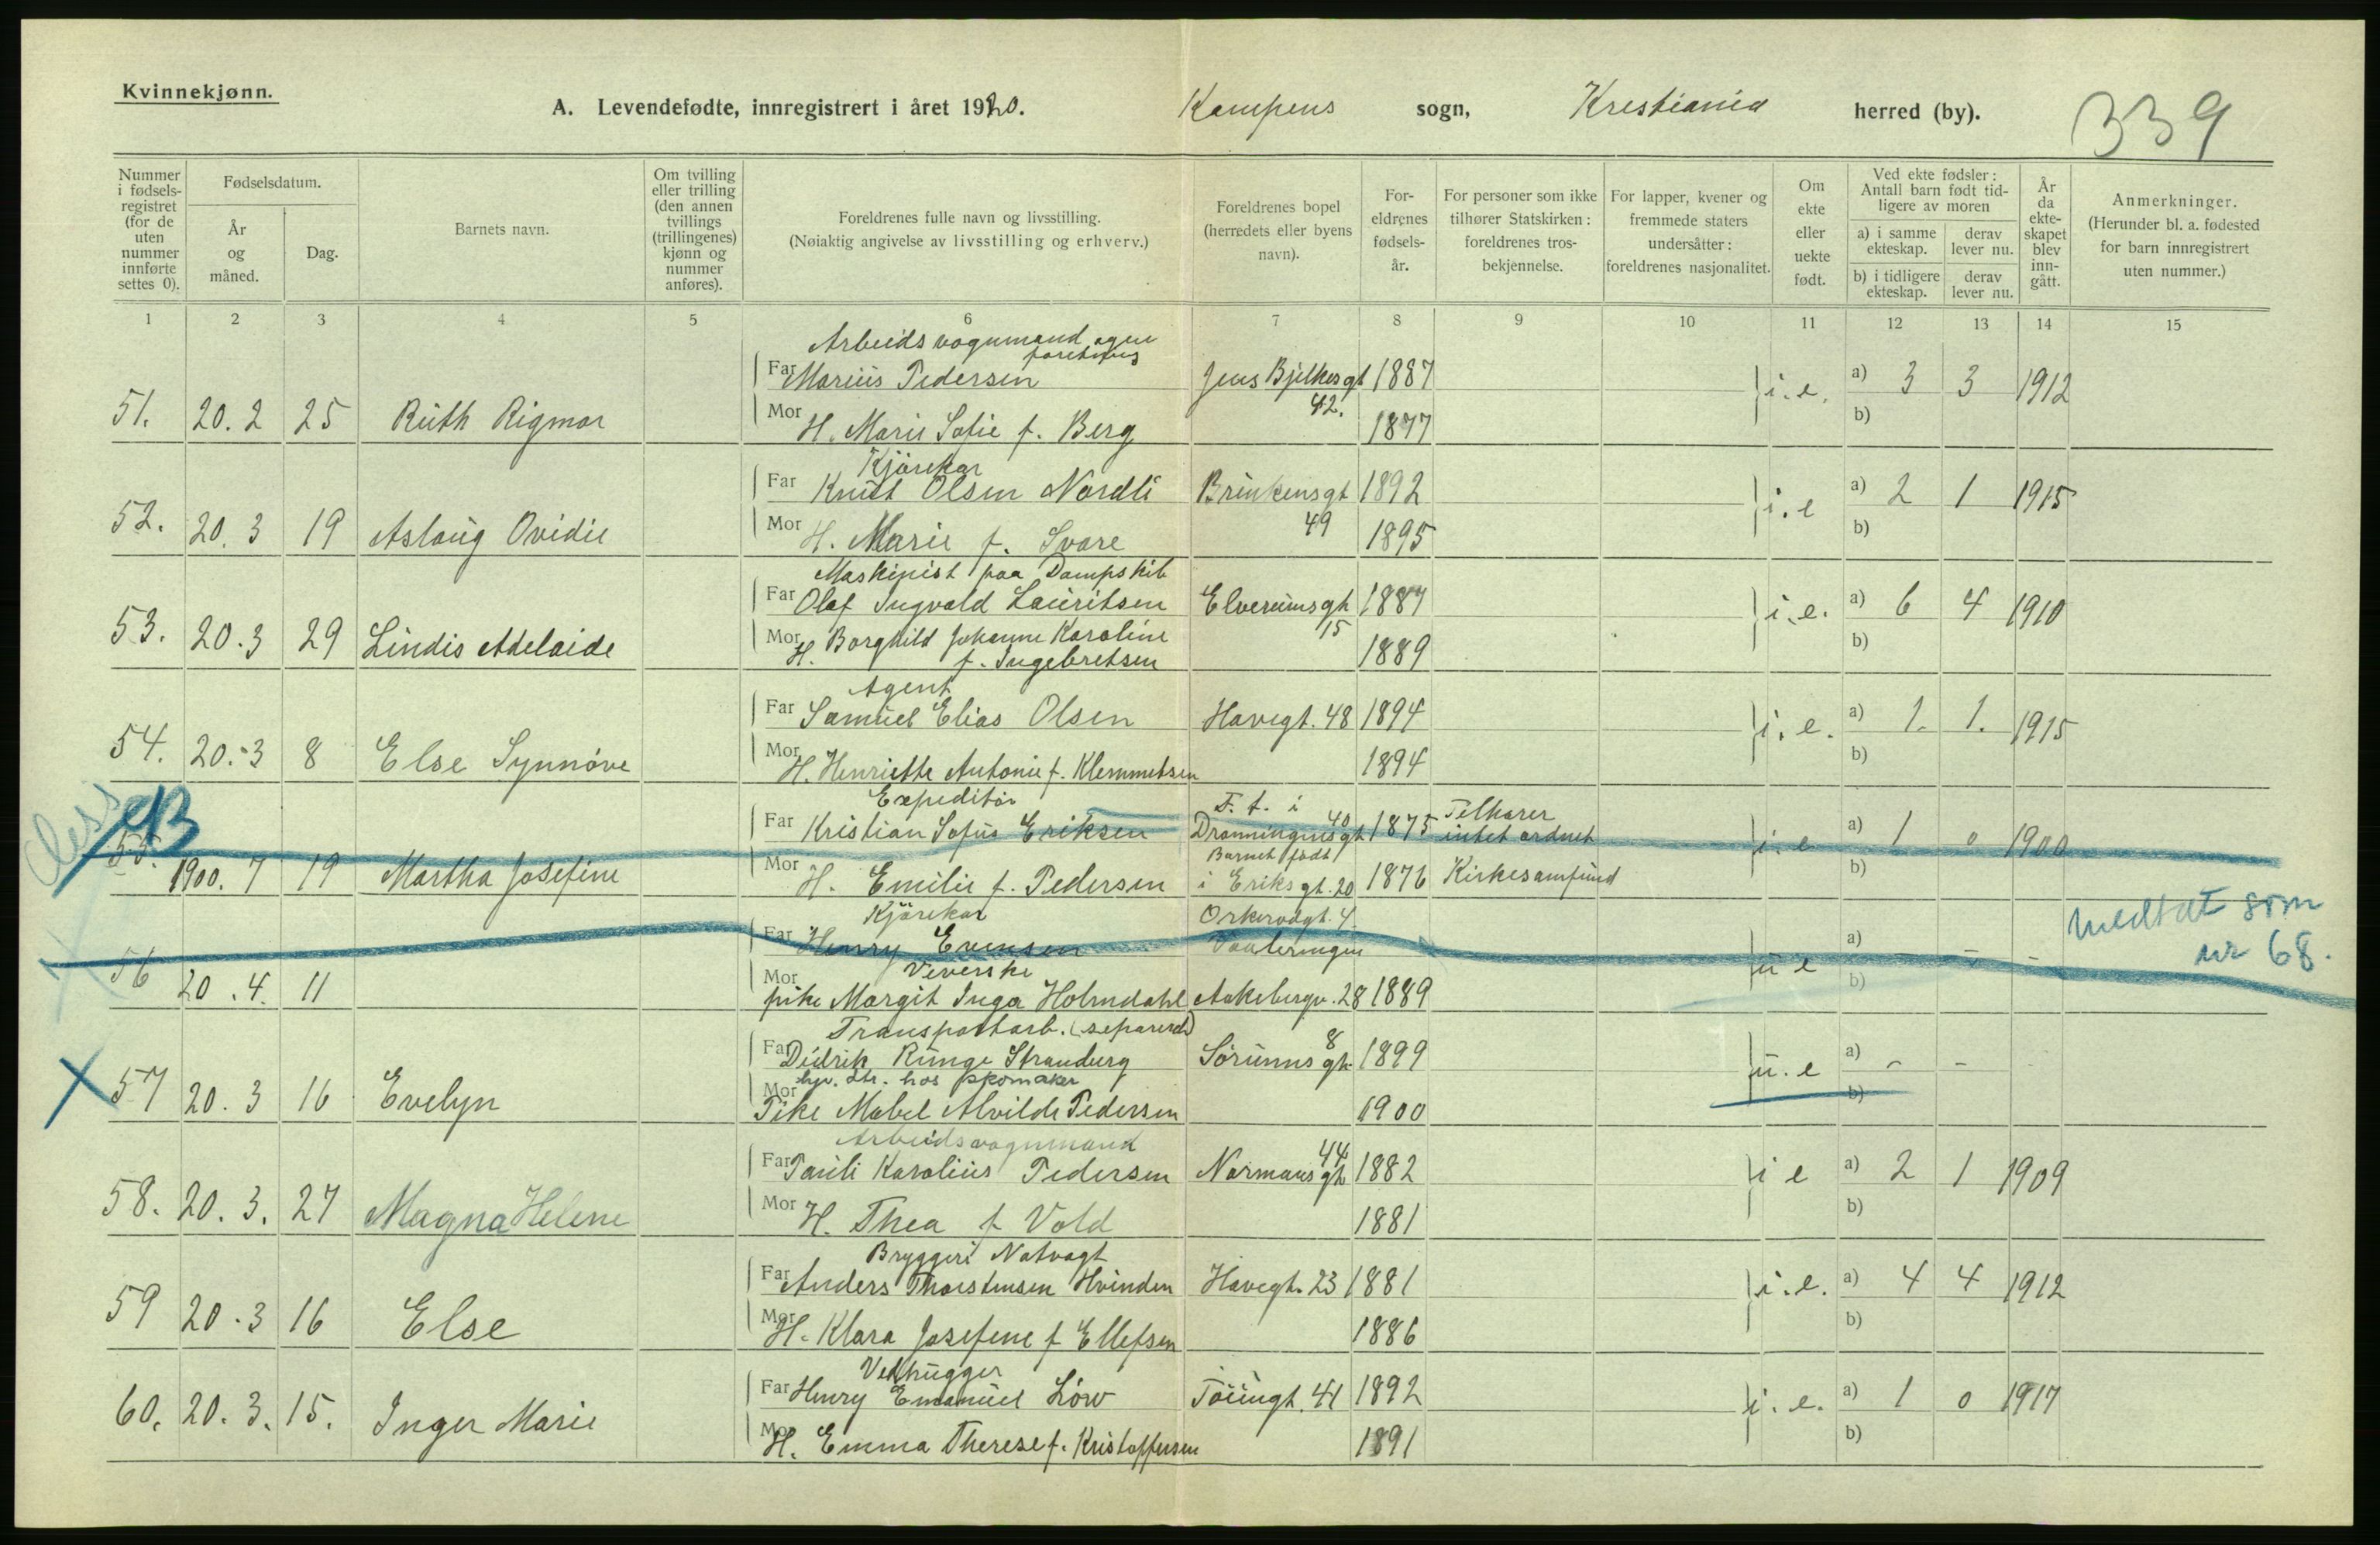 Kvinnekjønn.
A. Levendefødte, innregistrert i året 1920. Kampens sogn, Krestiania herred (by). 339
Nummer i fødsels-registret (for de uten nummer innførte settes 0).
Fødselsdatum.
År og måned.
Dag.
Barnets navn.
Om tvilling eller trilling (den annen tvillings (trillingenes) kjønn og nummer anføres).
Foreldrenes fulle navn og livsstilling.
(Nøiaktig angivelse av livsstilling og erhverv.)
Foreldrenes bopel (herredets eller byens navn).
For-eldrenes fødsels-år.
For personer som ikke tilhører Statskirken: foreldrenes tros-bekjennelse.
For lapper, kvener og fremmede staters undersåtter: foreldrenes nasjonalitet.
Om ekte eller uekte født.
Ved ekte fødsler: Antall barn født tid-ligere av moren
a) i samme ekteskap.
derav lever nu.
b) i tidligere ekteskap.
derav lever nu.
År da ekte-skapet blev inn-gått.
Anmerkninger.
(Herunder bl. a. fødested for barn innregistrert uten nummer.)
1 2 3 4 5 6 7 8 9 10 11 12 13 14 15
Arbeidsvognmand egen
Far Marius Pedersen Jens Bjelkes gt 1887 i.e. a) 3 3 1912
51. 20.2 25 Ruth Rigmor
Mor H. Marie Sofie f. Berg 42. 1877 b)
Kjørekar
Far Knut Olsen Nordli Brinkens gt 1892 i.e a) 2 1 1915
52. 20.3 19 Aslaug Ovidie
Mor H. Marie f. Svare 49 1895 b)
Maskinist paa Dampskib
Far Olaf Ingvald Lauritsen Elverums gt 1887 i.e. a) 6 4 1910
53. 20.3 29 Lindis Adelaide
Mor H. Borghild Johanne Karoline 15 b)
f. Ingebretsen 1889
Agent
Far Samuel Elias Olsen Havegt. 48 1894 i.e. a) 1. 1. 1915
54. 20.3 8 Else Synnøve
Mor H. Henriette Antonie f. Klemmetsen 1894 b)
Expeditør F. t. i Tilhører
Far Kristian Sofus Eriksen Dronningens gt 40 1875 intet ordnet i.e a) 1 0 1900
55. 1900. 7 19 Martha Josefine
Barnet født
Mor H. Emilie f. Pedersen i Eriks gt. 20 1876 Kirkesamfund b)
Kjørekar Orkerødgt. 4
Far Henry Evensen Vaaleringen u e a) - - -
56 20.4. 11
Veverske
Mor pike Margit Inga Holmdahl Aakebergv. 28 1889 b)
medtat som
nr 68.
Transportarb. (separeret)
Far Didrik Runge Strandberg Sørums gt. 8 1899 u.e a) - - -
57 20.3 16 Evelyn
hos skomaker
Mor Pike Mabel Alvilde Pedersen 1900 b)
Arbeidsvognmand
Far Pauli Karolius Pedersen Normans gt 44 1882 i e a) 2 1 1909
58. 20.3. 27 Magna Helene
Mor H. Thea f Vold 1881 b)
Bryggeri Natvagt
Far Anders Thorstensen Hvinden Havegt. 23 1881 i.e. a) 4 4 1912
59 20.3 16 Else
Mor H. Klara Josefine f Ellefsen 1886 b)
Vedhugger
Far Henry Emanuel Löw Tøiengt. 41 1892 i.e. a) 1 0 1917
60. 20.3. 15. Inger Marie
Mor H. Emma Therese f. Kristoffersen 1891 b)